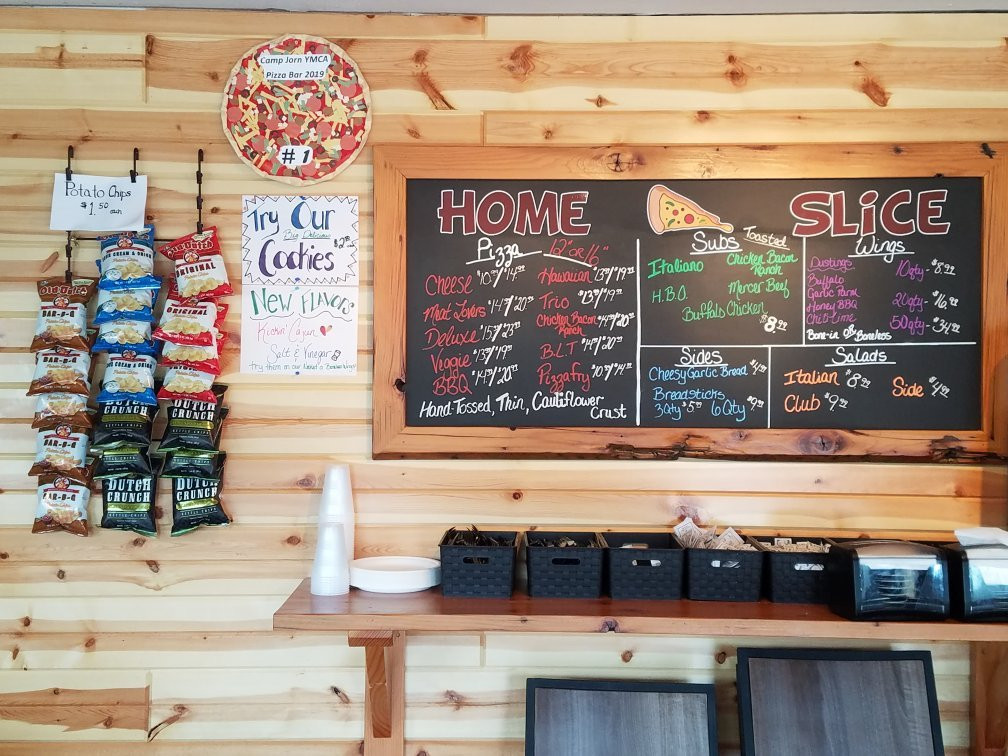 Camp Jorn YMCA
Pizza Bar 2019
# 1
Potato Chips
$1.50 each
Try Our
Big Delicious
Cookies
New Flavors
Kickin' Cajun
Salt & Vinegar
HOME SLiCE
Pizza 12" OR 16"
Cheese $10.99/$14.99
Meat Lovers $14.99/$20.99
Deluxe $15.99/$23.99
Veggie $13.99/$19.99
BBQ $14.99/$20.99
Hawaiian $13.99/$19.99
Trio $13.99/$19.99
Chicken Bacon Ranch $14.99/$20.99
BLT $14.99/$20.99
Pizza fry $10.99/$14.99
Hand-Tossed, Thin, Cauliflower
Crust
Subs Toasted
Italiano
H.B.O.
Chicken Bacon
Ranch
Mercer Beef
Buffalo Chicken
$8.99
Wings
Dustings
Buffalo
Garlic Parm
Honey BBQ
Chili Lime
10qty - $8.99
20qty - $16.99
50qty - $34.99
Bone-in OR Boneless
Sides
Cheesy Garlic Bread
Breadsticks
3Qty $5.99 6Qty $9.99
Salads
Italian $8.99
Club $9.99
Side $4.99
Old Dutch
BAR-B-Q
ORIGINAL
DUTCH
CRUNCH
KETTLE CHIPS